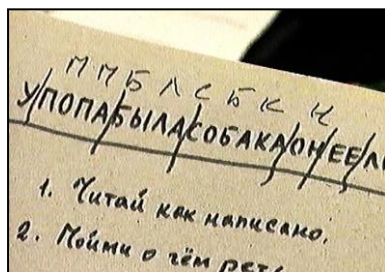 П П Б Л С Б К Н
У/ПОПА/БЫЛА/СОБАКА/ОН/ЕЕ/Л
1. Читай как написано.
2. Пойми о чём